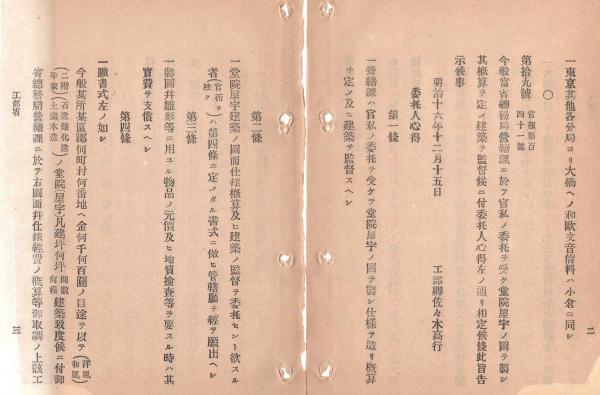 二
一東京其他各分局ヨリ大橋ヘノ和歐文音信料ハ小倉ニ同シ
〇
第拾九號 官報第百四十一號
今般當省總務局營繕課ニ於テ官私ノ委托ヲ受ケ堂院屋宇ノ圖ヲ製シ
其概算ヲ定メ建築ヲ監督候ニ付委托人心得左ノ通リ相定候條此旨告
示候事
明治十六年十二月十五日
工部卿佐々木高行
委托人心得
第一條
一營繕課ハ官私ノ委托ヲ受ケテ堂院屋宇ノ圖ヲ製シ仕樣ヲ造リ概算
ヲ定メ及ヒ建築ヲ監督スヘシ
第二條
一堂院屋宇建築ノ圖面仕樣概算及ヒ建築ノ監督ヲ委托セント欲スル
者(官衙ヲ除ク)ハ第四條ニ定メタル書式ニ倣ヒ管轄廳ヲ經テ願出ヘシ
第三條
一製圖幷雛形等ニ用ユル物品ノ元價及ヒ地質撿査等ヲ要スル時ハ其
實費ヲ支償スヘシ
第四條
一願書式左ノ如シ
今般某所某區郡何町村何番地ヘ金何千何百圓ノ目途ヲ以テ(洋風和風)
(二階平家)(石造煉化造土藏木造)ノ堂院(屋宇)凡建坪何坪間數何箱建築致度候ニ付御
省總務局營繕課ニ於テ右圖面幷仕樣經費ノ概算等御取調ノ上該工
工部省
三